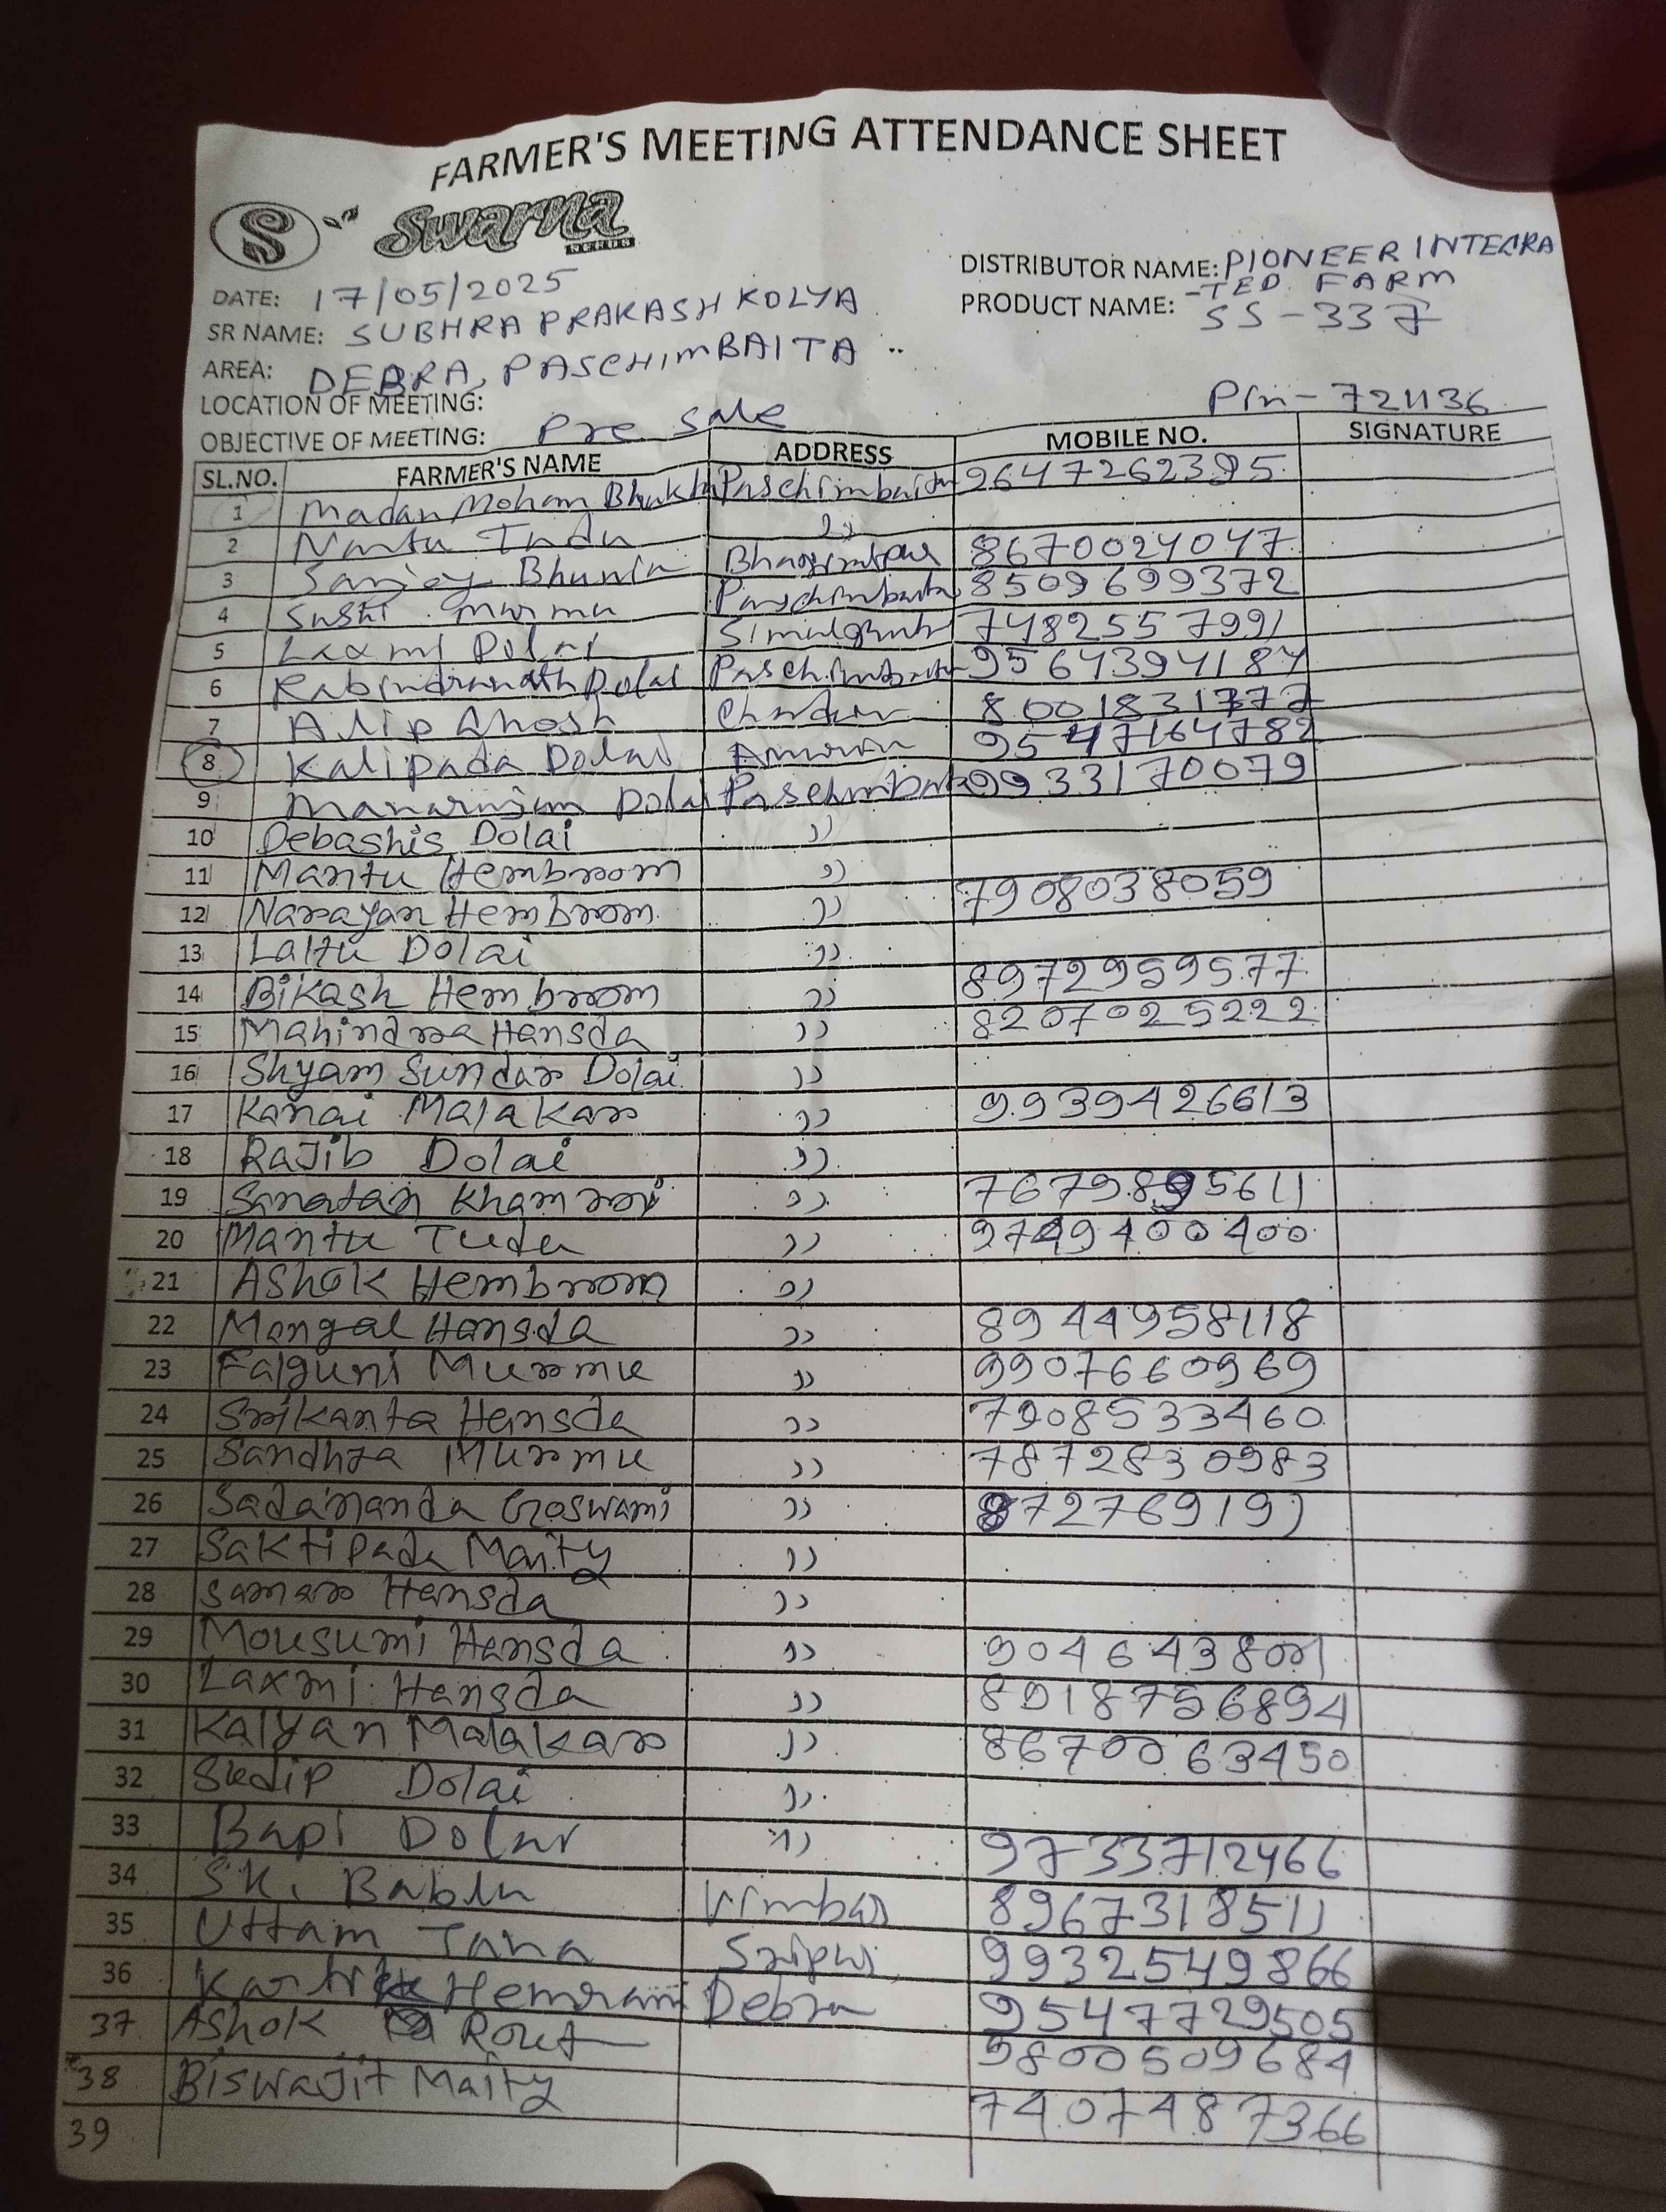 FARMER'S MEETING ATTENDANCE SHEET
S Swarna
DISTRIBUTOR NAME: PIONEER INTEGRA
-TED. FARM
DATE: 17/05/2025
PRODUCT NAME: SS-337
SR NAME: SUBHRA PRAKASH KOLYA
AREA: DEBRA, PASCHIMBAITA
LOCATION OF MEETING:
Pin-721136
OBJECTIVE OF MEETING: Pre sale
SL.NO. FARMER'S NAME ADDRESS MOBILE NO. SIGNATURE
1 Madan Mohan Bhukta Paschimbaita 9647262395
2 Nantu Tudu ,,
3 Sanjay Bhunia 8670024047
4 Sushi Murmu Paschimbaita 8509699372
5 Laxmi Dolai 7482557991
6 Rabindranath Dolai Paschimbaita 9564394184
7 Ghosh 8001831777
8 Kalipada Dolai
9 Manaranjan Dolai Paschimbaita 9933170079
10 Debashis Dolai ,,
11 Mantu Hembrom ,,
12 Narayan Hembrom ,, 7908038059
13 Laltu Dolai ,,
14 Bikash Hembrom ,, 8972959577
15 Mahindra Hansda ,, 8207025222
16 Shyam Sundar Dolai ,,
17 Kanai Malakar ,, 9939426613
18 Rajib Dolai ,,
19 Sanatan Khamroi ,, 7679895611
20 Mantu Tudu ,, 9749400400
21 Ashok Hembrom ,,
22 Mongal Hansda ,, 8944958118
23 Falguni Murmu ,, 9907660969
24 Srikanta Hansda ,, 7908533460
25 Sandhya Murmu ,, 7872830983
26 Sadananda Goswami ,, 872769191
27 Saktipada Maity ,,
28 Samar Hansda ,,
29 Mousumi Hansda ,, 9046438001
30 Laxmi Hansda ,, 8918756894
31 Kalyan Malakar ,, 8670063450
32 Sudip Dolai ,,
33 Bapi Dolai ,, 9733712466
34 SK. Bablu 8967318511
35 Uttam Jana Sripur 9932549866
36 Kartik Hemram Debra 9547729505
37 Ashok Rout 9800509684
38 Biswajit Maity 7407487366
39